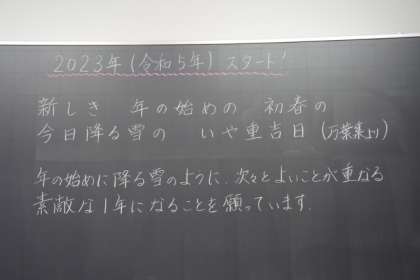 2023年(令和5年)スタート!
新しき 年の始めの 初春の
今日降る雪の いや重吉日(万葉集より)
年の始めに降る雪のように、次々とよいことが重なる
素敵な1年になることを願っています.